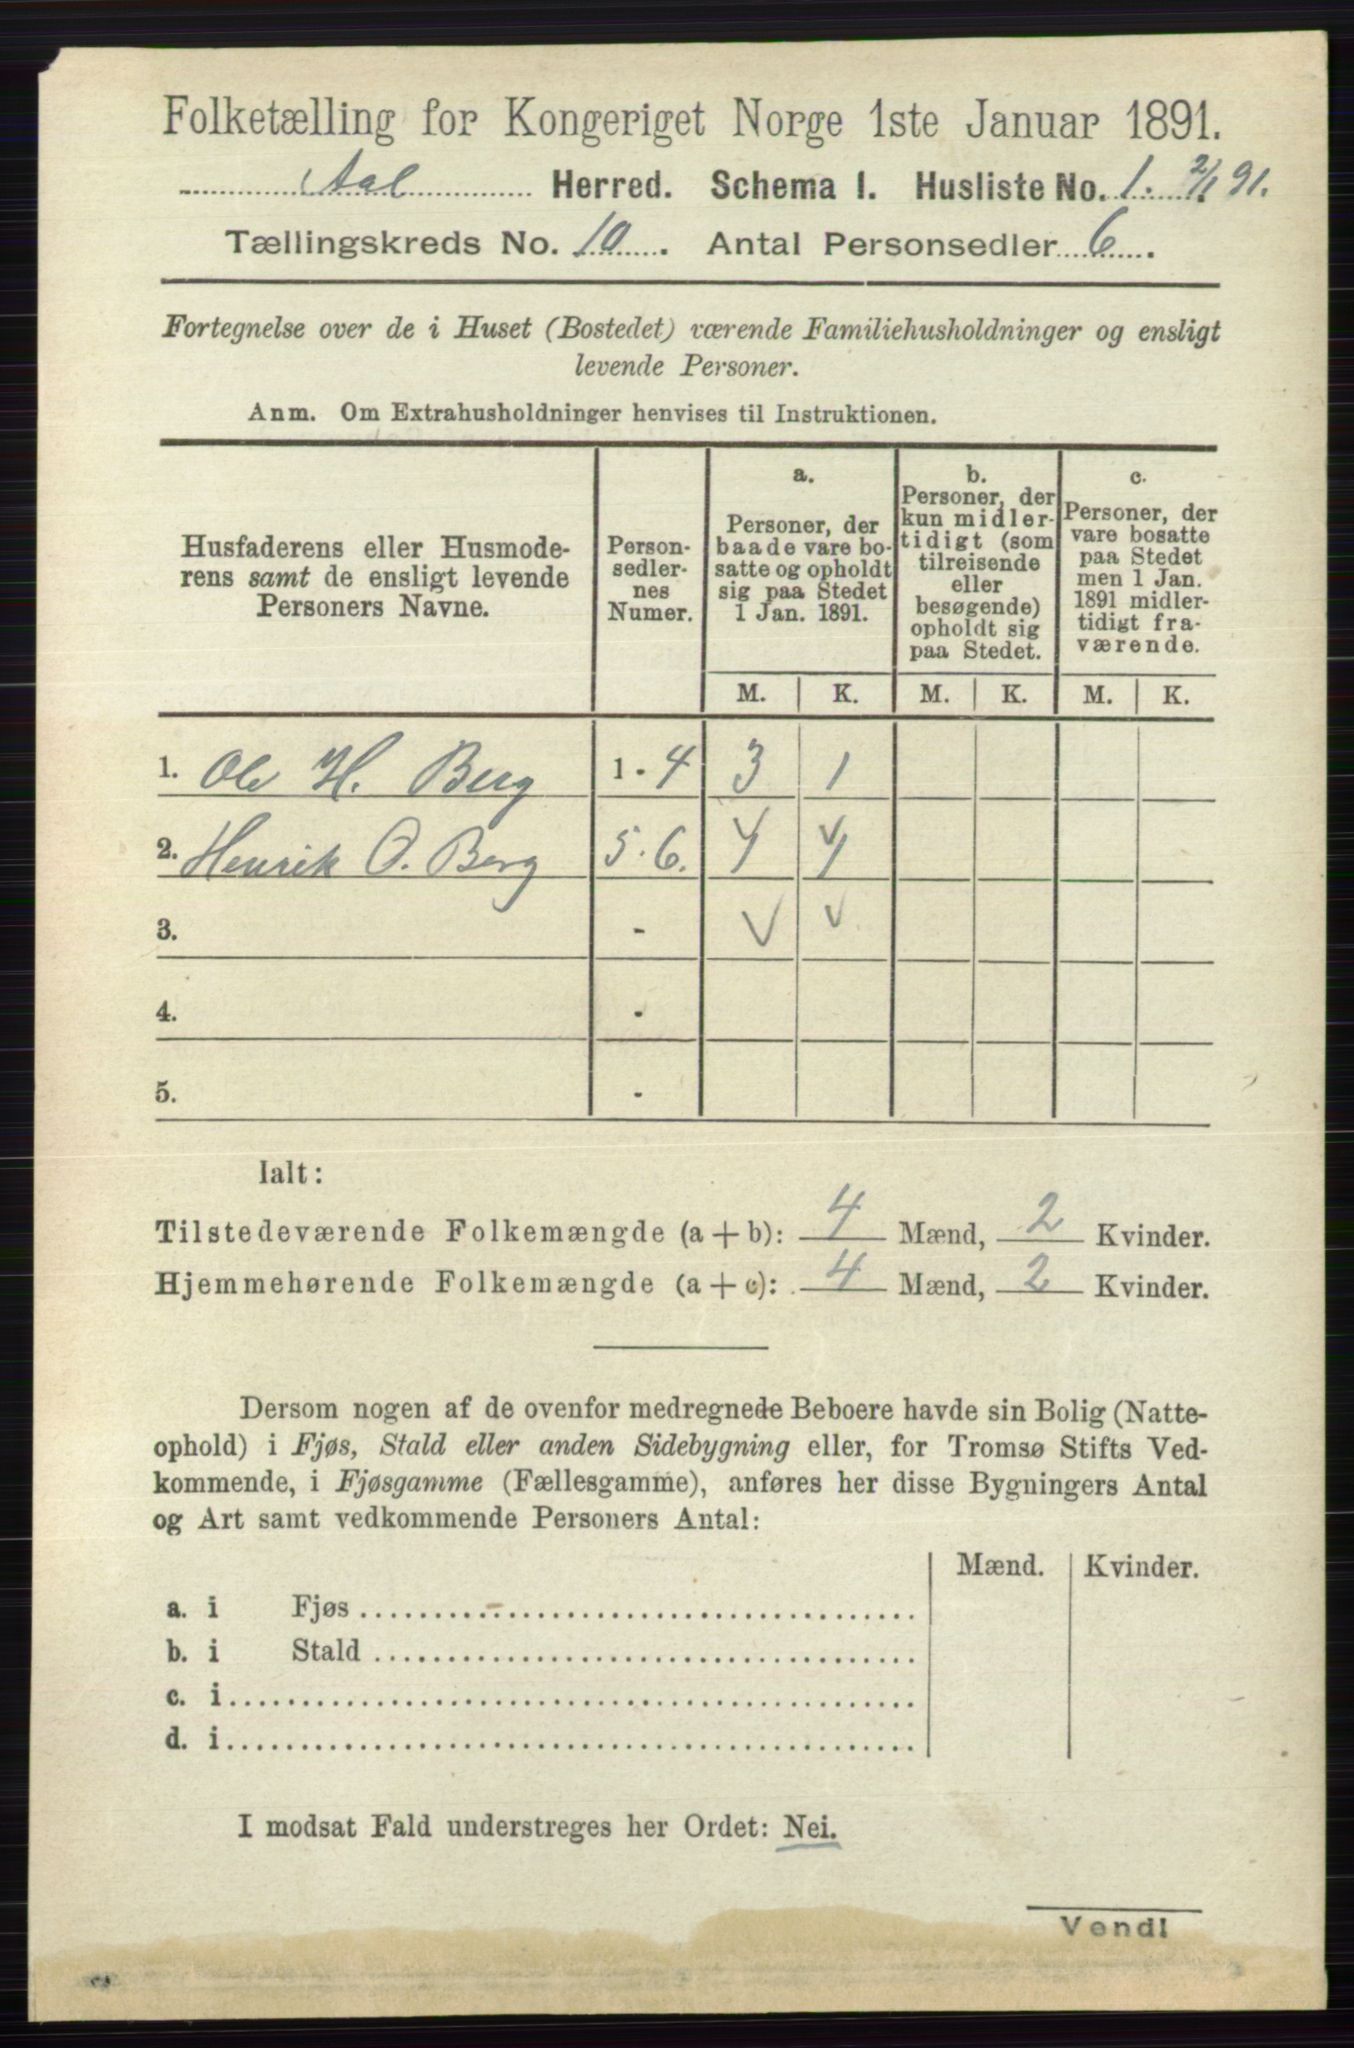 Folketælling for Kongeriget Norge 1ste Januar 1891.
Aal Herred. Schema I. Husliste No. 1. 2/1 91.
Tællingskreds No. 10. Antal Personsedler 6.
Fortegnelse over de i Huset (Bostedet) værende Familiehusholdninger og ensligt
levende Personer.
Anm. Om Extrahusholdninger henvises til Instruktionen.
Husfaderens eller Husmode-
rens samt de ensligt levende
Personers Navne.
Person-
sedler-
nes
Numer.
a.
Personer, der
baade vare bo-
satte og opholdt
sig paa Stedet
1 Jan. 1891.
b.
Personer, der
kun midler-
tidigt (som
tilreisende
eller
besøgende)
opholdt sig
paa Stedet.
c.
Personer, der
vare bosatte
paa Stedet
men 1 Jan.
1891 midler-
tidigt fra-
værende.
M. K. M. K. M. K.
1. Ole H. Berg 1 - 4 3 1
2. Henrik O. Berg 5 - 6. 1 1
3. -
4. -
5. -
Ialt:
Tilstedeværende Folkemængde (a + b): 4 Mænd, 2 Kvinder.
Hjemmehørende Folkemængde (a + c): 4 Mænd, 2 Kvinder.
Dersom nogen af de ovenfor medregnede Beboere havde sin Bolig (Natte-
ophold) i Fjøs, Stald eller anden Sidebygning eller, for Tromsø Stifts Ved-
kommende, i Fjøsgamme (Fællesgamme), anføres her disse Bygningers Antal
og Art samt vedkommende Personers Antal:
Mænd. Kvinder.
a. i Fjøs
b. i Stald
c. i
d. i
I modsat Fald understreges her Ordet: Nei.
Vend!